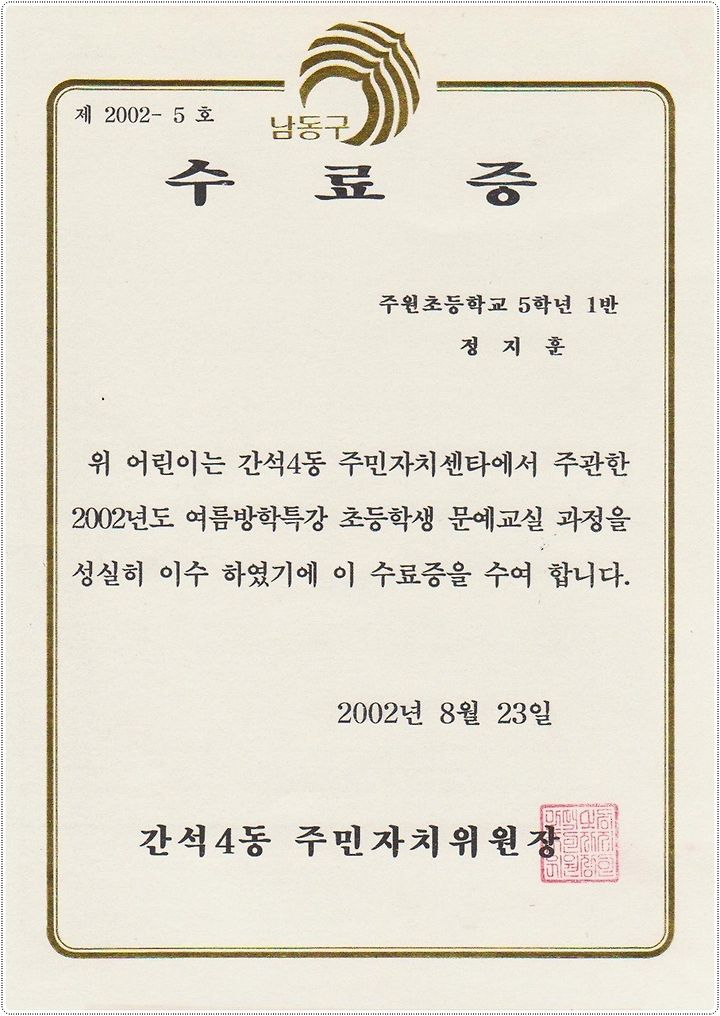 남동구
제 2002- 5 호
수 료 증
주원초등학교 5학년 1반
정 지 훈
위 어린이는 간석4동 주민자치센타에서 주관한
2002년도 여름방학특강 초등학생 문예교실 과정을
성실히 이수 하였기에 이 수료증을 수여 합니다.
2002년 8월 23일
간석4동 주민자치위원장